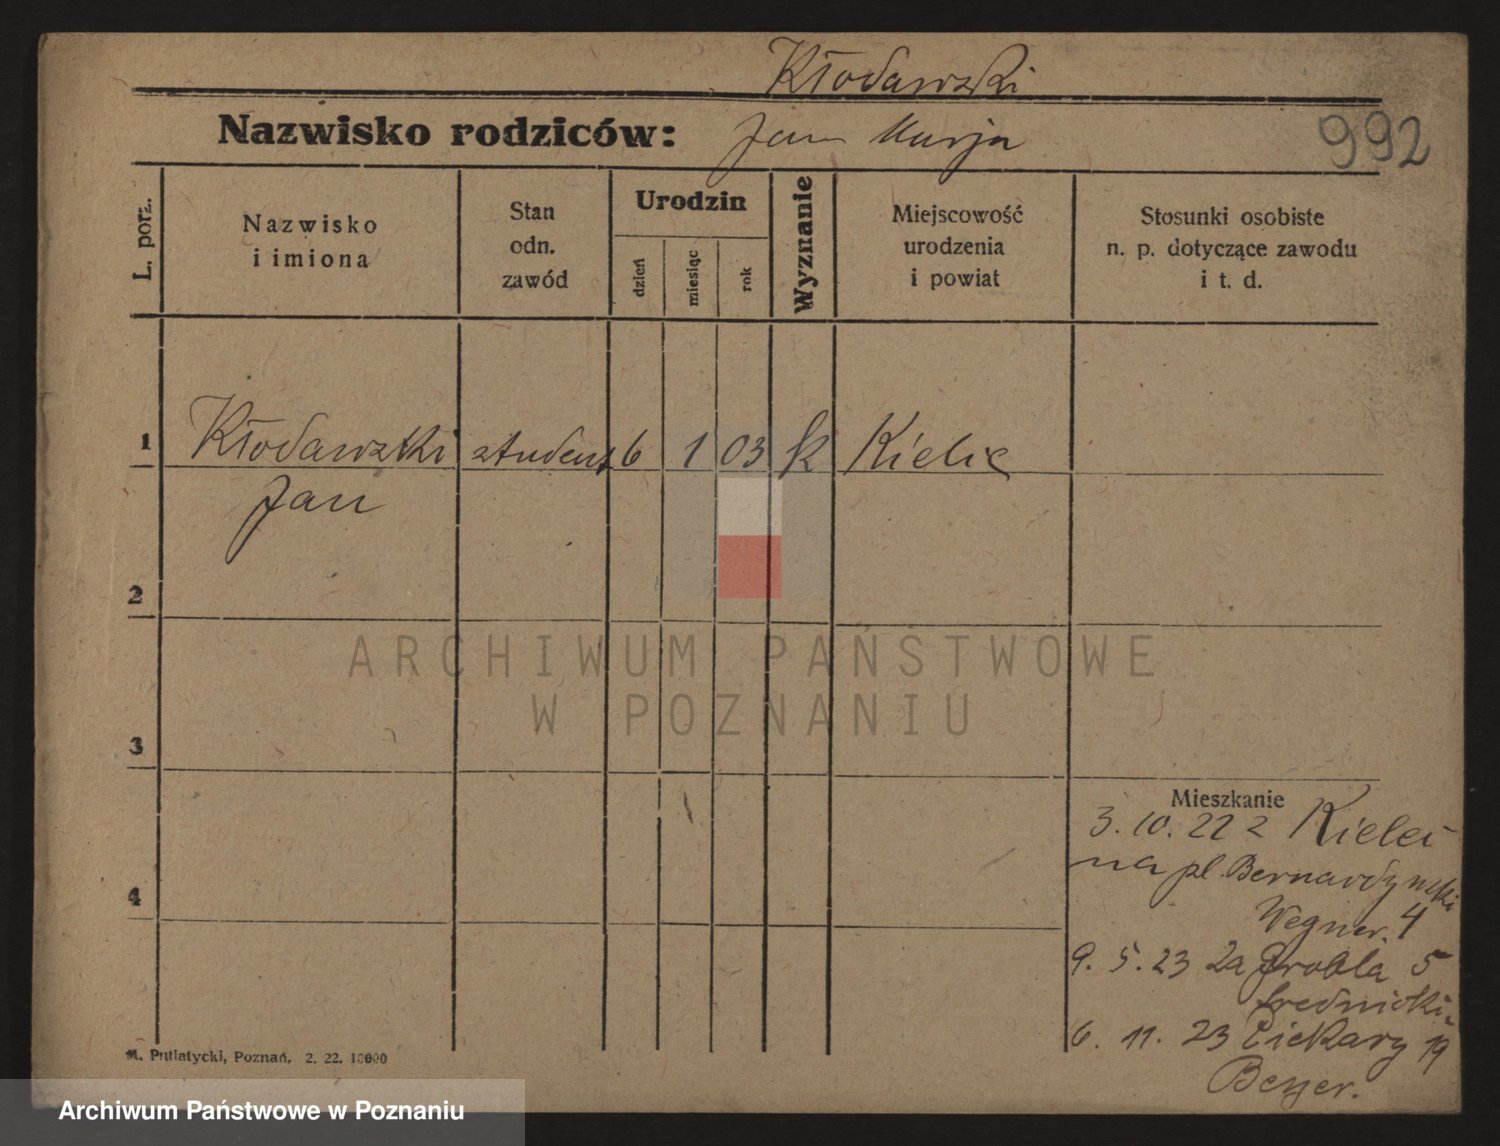 Kłodawski
Nazwisko rodziców: Jan Marja
992
L. porz.
Nazwisko
i imiona
Stan
odn.
zawód
Urodzin
dzień
miesiąc
rok
Wyznanie
Miejscowość
urodzenia
i powiat
Stosunki osobiste
n. p. dotyczące zawodu
i t. d.
1 Kłodawski student 6 1 03 k Kielce
Jan
2
3
4
Mieszkanie
3. 10. 22 z Kielc
na pl. Bernardyński
Wegner. 4
9. 5. 23 za Grobla 5
6. 11. 23 Piekary 19
Beyer.
M. Putiatycki, Poznań. 2. 22. 10000
ARCHIWUM PAŃSTWOWE
W POZNANIU
Archiwum Państwowe w Poznaniu